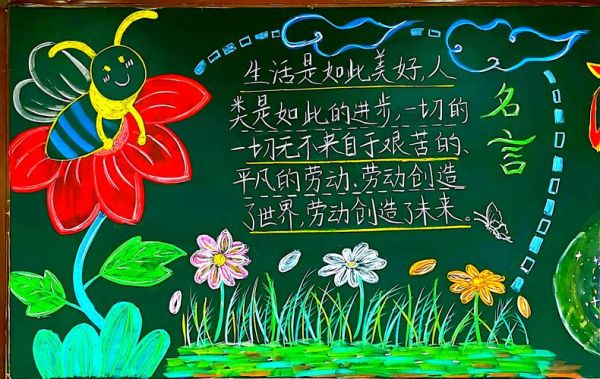 生活是如此美好,人
类是如此的进步,一切的
一切无不来自于艰苦的、
平凡的劳动、劳动创造
了世界,劳动创造了未来。
名言